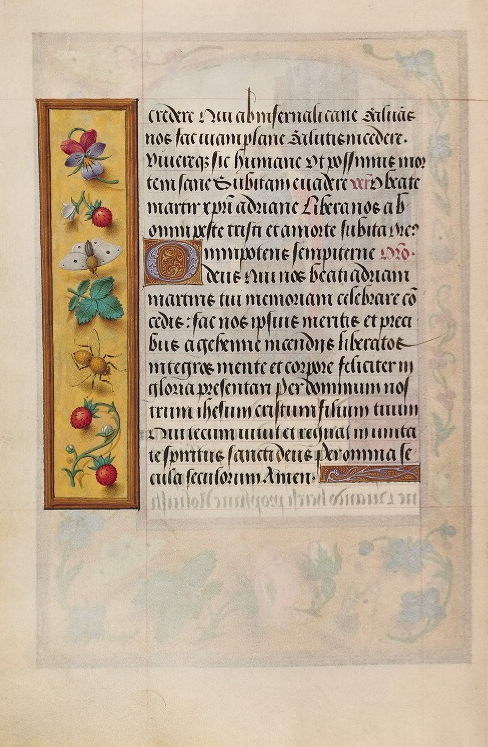 credere Qui ab infernali cane Saluās
nos fac viam plane Salutis incedere.
Viuereqz sic humane Vt possimus mor
tem sane Subitam euadere O beate
martir xp̄ri adriane Libera nos ab
omni peste tristi et a morte subita
Omnipotens sempiterne Oro͞.
deus Qui nos beati adriani
martiris tui memoriam celebrare cō
cedis : fac nos ipsius meritis et preci
bus a gehenne incendijs liberatos
integros mente et corpore feliciter in
gloria presentari Per dominum nos
trum ihesum cristum filium tuum
Qui tecum viuit et regnat in vnita
te spiritus sancti deus per omnia se
cula seculorum Amen.